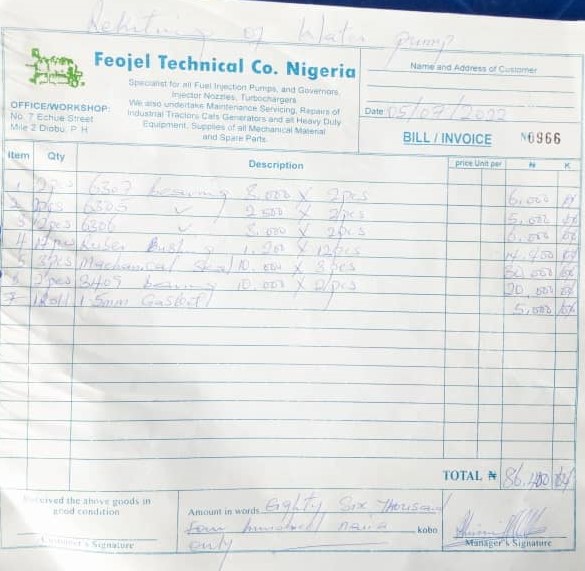 Rekitting of Water pump
Feojel Technical Co. Nigeria
Specialist for all Fuel Injection Pumps, and Governors,
Injector Nozzles, Turbochargers
We also undertake Maintenance Servicing, Repairs of
Industrial Tractors Cats Generators and all Heavy Duty
Equipment, Supplies of all Mechanical Material
and Spare Parts.
OFFICE/WORKSHOP:
No. 7 Echue Street
Mile 2 Diobu, P. H
Name and Address of Customer
Date 05/07/2022
BILL / INVOICE № 0966
Item Qty Description price Unit per ₦ K
1 2pcs 6307 bearing 3,000 X 2pcs 6,000
2 2pcs 6305 " 2,500 X 2pcs 5,000
3 2pcs 6306 " 3,000 X 2pcs 6,000
4 12pcs Ruber Bushing 1,200 X 12pcs 14,400
5 3pcs Mechanical Seal 10,000 X 3pcs 30,000
6 2pcs 3409 bearing 10,000 X 2pcs 20,000
7 1Roll 1.5mm Gasket 5,000
TOTAL ₦ 86,400
Received the above goods in
good condition
Customer's Signature
Amount in words Eighty Six Thousand
four hundred naira kobo
only
Manager's Signature